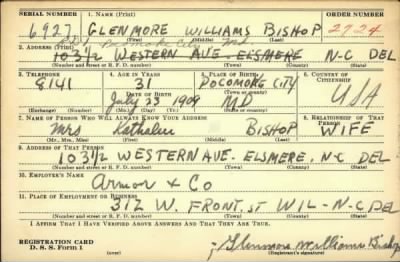 SERIAL NUMBER 1. NAME (Print) ORDER NUMBER
6927 GLENMORE WILLIAMS BISHOP 2724
(First) (Middle) (Last)
Pocomoke City Md.
2. ADDRESS (Print)
103½ WESTERN AVE ELSMERE N-C DEL
(Number and street or R. F. D. number) (Town) (County) (State)
3. TELEPHONE 4. AGE IN YEARS 5. PLACE OF BIRTH 6. COUNTRY OF CITIZENSHIP
8141 31 POCOMOKE CITY
DATE OF BIRTH (Town or county)
July 23 1909 MD. USA
(Exchange) (Number) (Mo.) (Day) (Yr.) (State or country)
7. NAME OF PERSON WHO WILL ALWAYS KNOW YOUR ADDRESS 8. RELATIONSHIP OF THAT PERSON
Mrs Kathalee BISHOP WIFE
(Mr., Mrs., Miss) (First) (Middle) (Last)
9. ADDRESS OF THAT PERSON
103½ WESTERN AVE. ELSMERE, N-C DEL
(Number and street or R. F. D. number) (Town) (County) (State)
10. EMPLOYER'S NAME
Armor & Co
11. PLACE OF EMPLOYMENT OR BUSINESS
312 W. FRONT, ST WIL-N-C DEL
(Number and street or R. F. D. number) (Town) (County) (State)
I AFFIRM THAT I HAVE VERIFIED ABOVE ANSWERS AND THAT THEY ARE TRUE.
REGISTRATION CARD
D. S. S. Form 1 (over) Glenmore Williams Bishop
(Registrant's signature)